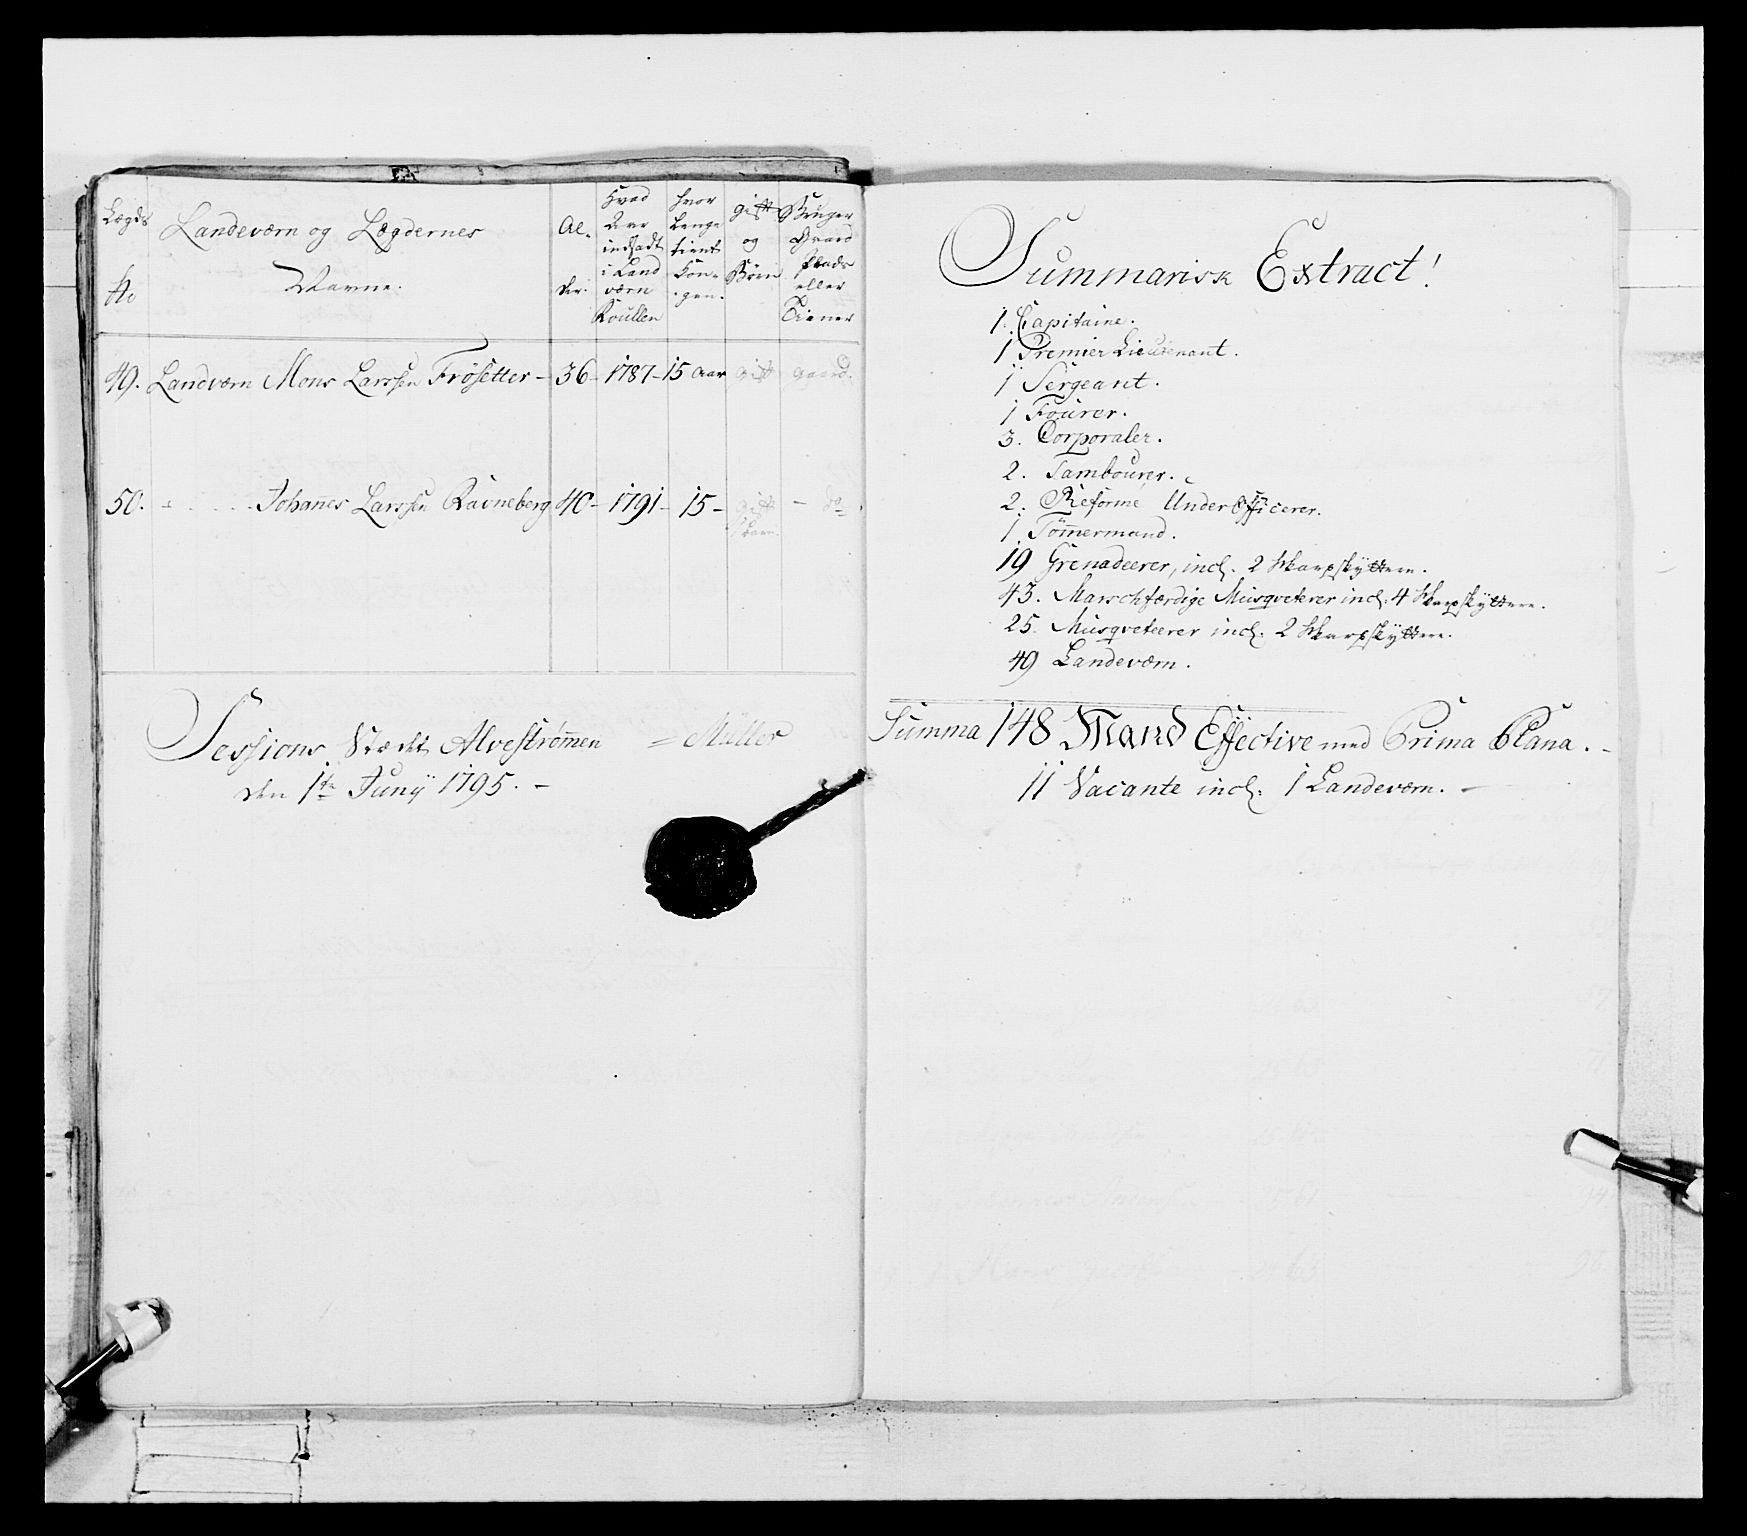 Lægds No
Landeværn og Lægdernes Navne.
Al-der.
Hvad Aar indsadt i Land værn Roullen
hvor Lenge tient Kon-gen.
gift og Børn
Bruger Gaard Plads eller Tiener
49. Landværn Mons Larssen Frösetter - 36 - 1787 - 15 Aar gift gaard.
50. - Johanes Larssen Ravneberg 40 - 1791 - 15 - gift 1 barn. - do
Sessions Stædet Alveströmen = Müller
den 1te Junÿ 1795. -
Summarisk Extract!
1. Capitaine.
1 Premier Lieutenant.
1 Sergeant.
1 Fourer.
3. Corporaler.
2. Tambourer.
2. Reforme UnderOfficerer.
1 Tömermand.
19 Grenadeerer, incl. 2 Skarpskyttere.
43. Marschfærdige Musqveterer incl. 4 Skarpskyttere.
25. Musqveteerer incl. 2 Skarpskyttere.
49 Landeværn.
Summa 148 Mand Effective med Prima Plana. -
11 Vacante incl. 1 Landeværn. -